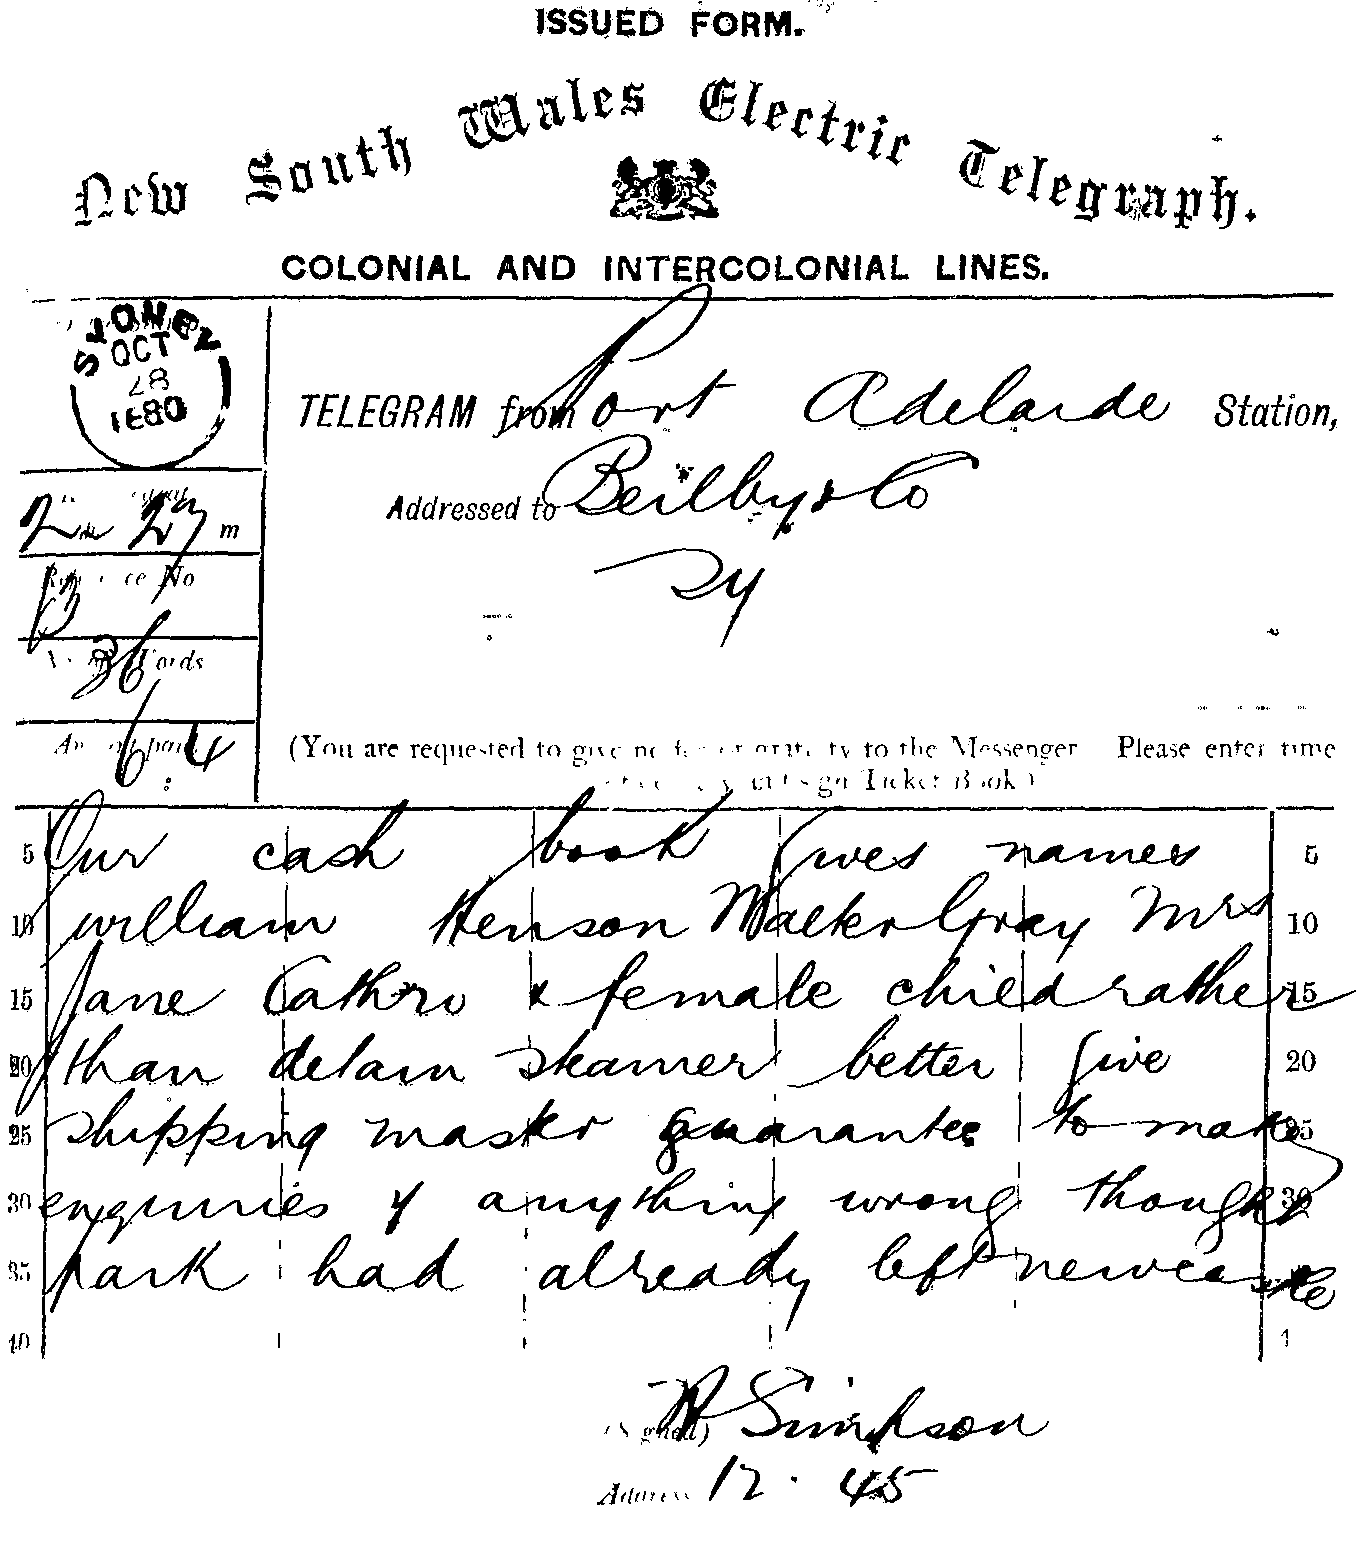 ISSUED FORM.
New South Wales Electric Telegraph.
COLONIAL AND INTERCOLONIAL LINES.
SYDNEY
OCT
28
1880
TELEGRAM from Port Adelaide Station,
Addressed to Beilby & Co
Sy
27 m
No
B
36
Words
6 4
(You are requested to give no fee or gratuity to the Messenger Please enter time
Ticket Book)
5 Our cash book gives names 5
10 william Henson Walter Gray Mrs 10
15 Jane Cathro & female child rather 15
20 than detain steamer better give 20
25 shipping master guarantee to make 25
30 enquiries if anything wrong thought 30
35 park had already left newcastle
40
(Signed) W Simpson
Address 12 . 45